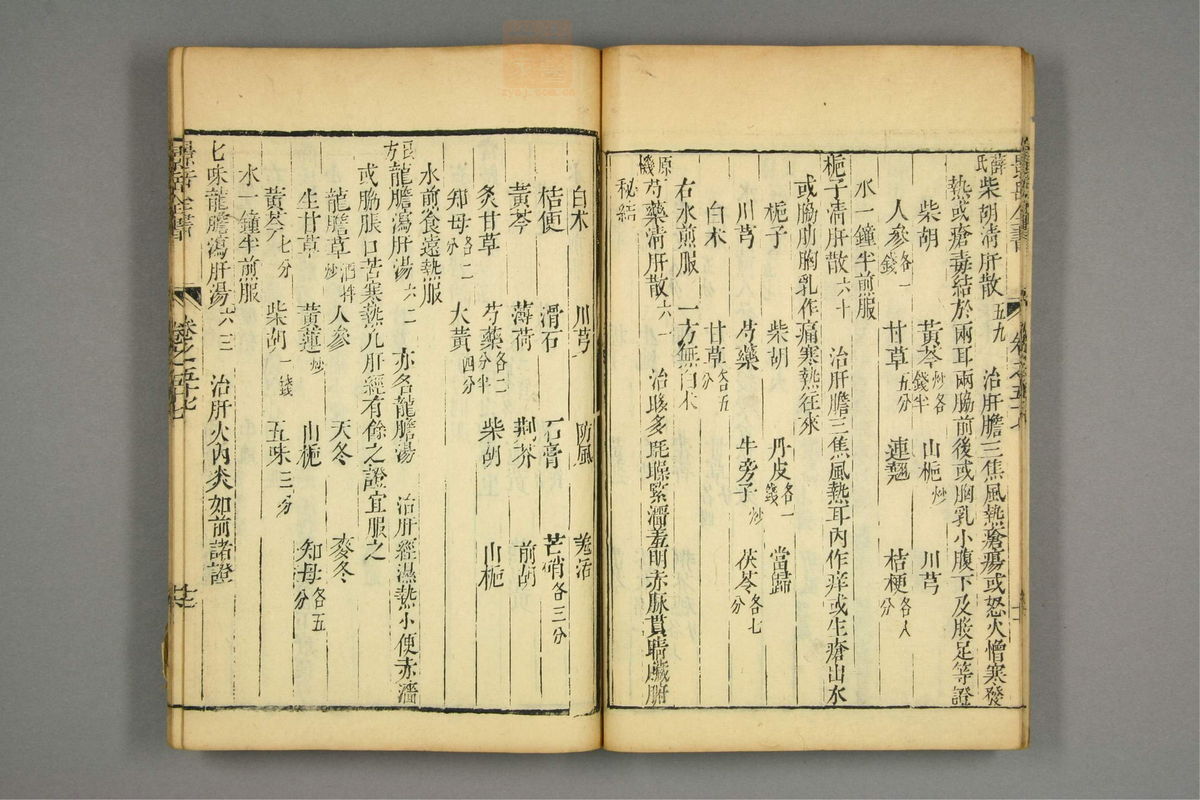 薛氏柴胡清肝散五九 治肝膽三焦風熱瘡瘍或怒火憎寒發
熱或瘡毒結於兩耳兩脇前後或胸乳小腹下及股足等證
柴胡 黃芩炒各錢半 山梔炒 川芎
人參各一錢 甘草五分 連翹 桔梗各八分
水一鐘半煎服
梔子清肝散六十 治肝膽三焦風熱耳內作痒或生瘡出水
或脇肋胸乳作痛寒熱往來
梔子 柴胡 丹皮各一錢 當歸
川芎 芍藥 牛旁子炒 茯苓各七分
白朮 甘草各五分
右水煎服 一方無白朮
原機芍藥清肝散六一 治眵多眊矂緊濇羞明赤脉貫睛臟腑
秘結
白朮 川芎 防風 羗活
桔梗 滑石 石膏 芒硝各三分
黃芩 薄荷 荆芥 前胡
炙甘草 芍藥各二分半 柴胡 山梔
知母各二分 大黃四分
水煎食遠熱服
良方龍膽瀉肝湯六二 亦名龍膽湯 治肝經濕熱小便赤濇
或脇脹口苦寒熱凡肝經有餘之證宜服之
龍膽草酒拌炒 人參 天冬 麥冬
生甘草 黃蓮炒 山梔 知母各五分
黃芩七分 柴胡一錢 五味三分
水一鐘半煎服
七味龍膽瀉肝湯六三 治肝火內炎如前諸證
景岳全書 卷之五十七 廿七